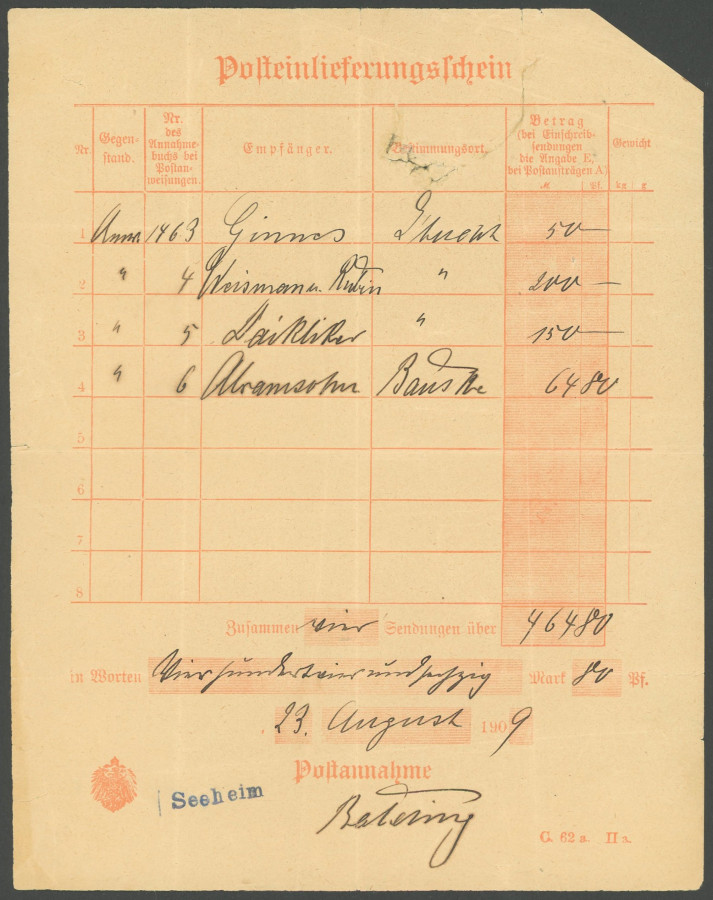 Posteinlieferungsschein
Nr. Gegenstand. Nr. des Annahmebuchs bei Postanweisungen. Empfänger. Bestimmungsort. Betrag (bei Einschreibsendungen die Angabe E, bei Postaufträgen A) Gewicht
M Pf. kg g
1 1463 50 —
2 " 4 " 200 —
3 " 5 " 150 —
4 " 6 Abramsohn 64 80
5
6
7
8
Zusammen vier Sendungen über 464 80
in Worten Vierhundertvierundsechzig Mark 80 Pf.
23. August 1909
Postannahme
Seeheim
C. 62 a. II a.